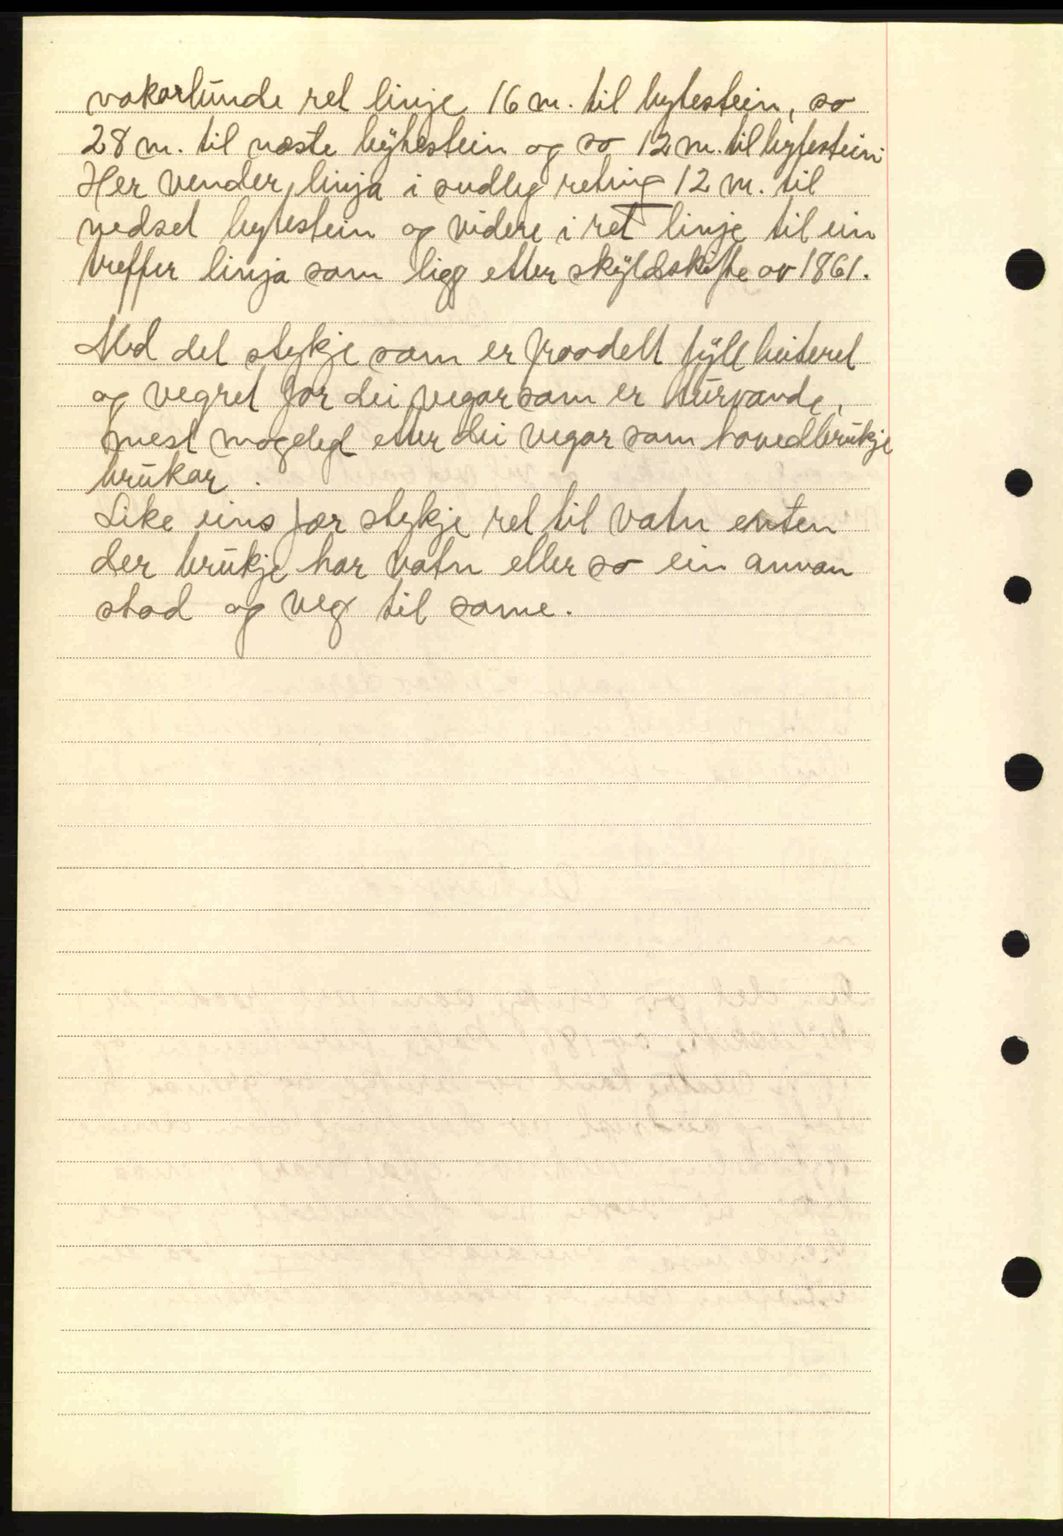 vakarlunde ret linje 16 m. til bytestein, so
28 m. til næste býtestein og so 12 m. til bytestein.
Her vender linja i sudleg retning 12 m. til
nedset bytestein og videre i ret linje til ein
treffer linja som ligg etter skýldskifte av 1861.
Med det stykje som er fraadelt fýll beiteret
og vegret for dei vegar som er túrvande,
mest mogelegt etter dei vegar som hovedbrúkje
brúkar.
Like eins fær stykje ret til vatn enten
der brúkje har vatn eller so ein annan
stad og veg til same.